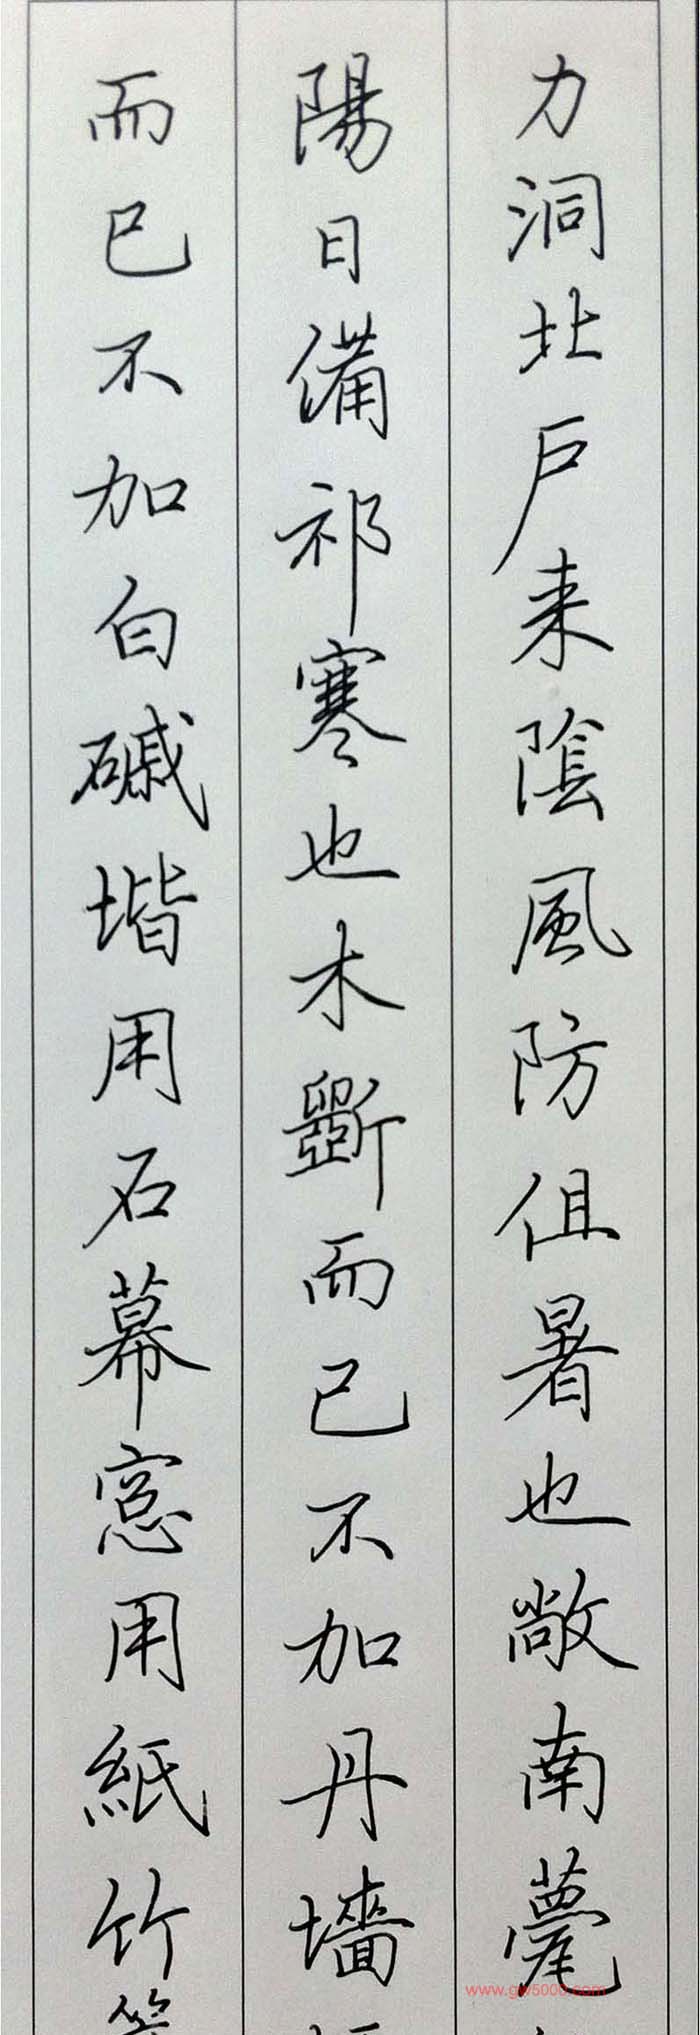 力洞北戶来陰風防徂暑也敞南甍
陽日備祁寒也木斵而已不加丹墻
而已不加白磩堦用石幕窓用紙竹
www.gw5000.com